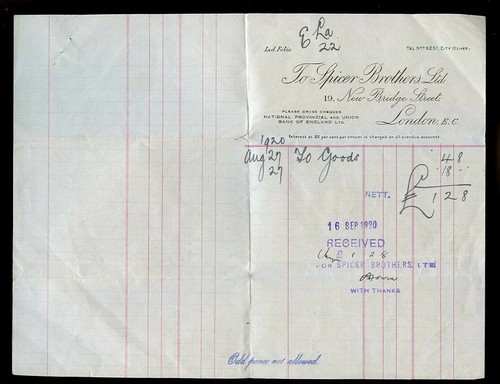 E La
22
Led. Folio
TEL. Nos 6251, CITY (5 LINES).
To Spicer Brothers, Ltd
19, New Bridge Street,
London, E.C.
PLEASE CROSS CHEQUES
NATIONAL PROVINCIAL AND UNION
BANK OF ENGLAND LTD.
Interest at £5 per cent per annum is charged on all overdue accounts.
1920
Aug 27 To Goods 4 8
27 18
NETT. £ 1 2 8
16 SEP 1920
RECEIVED
£ 1 2 8
FOR SPICER BROTHERS, LTD.
WITH THANKS
Odd pence not allowed.